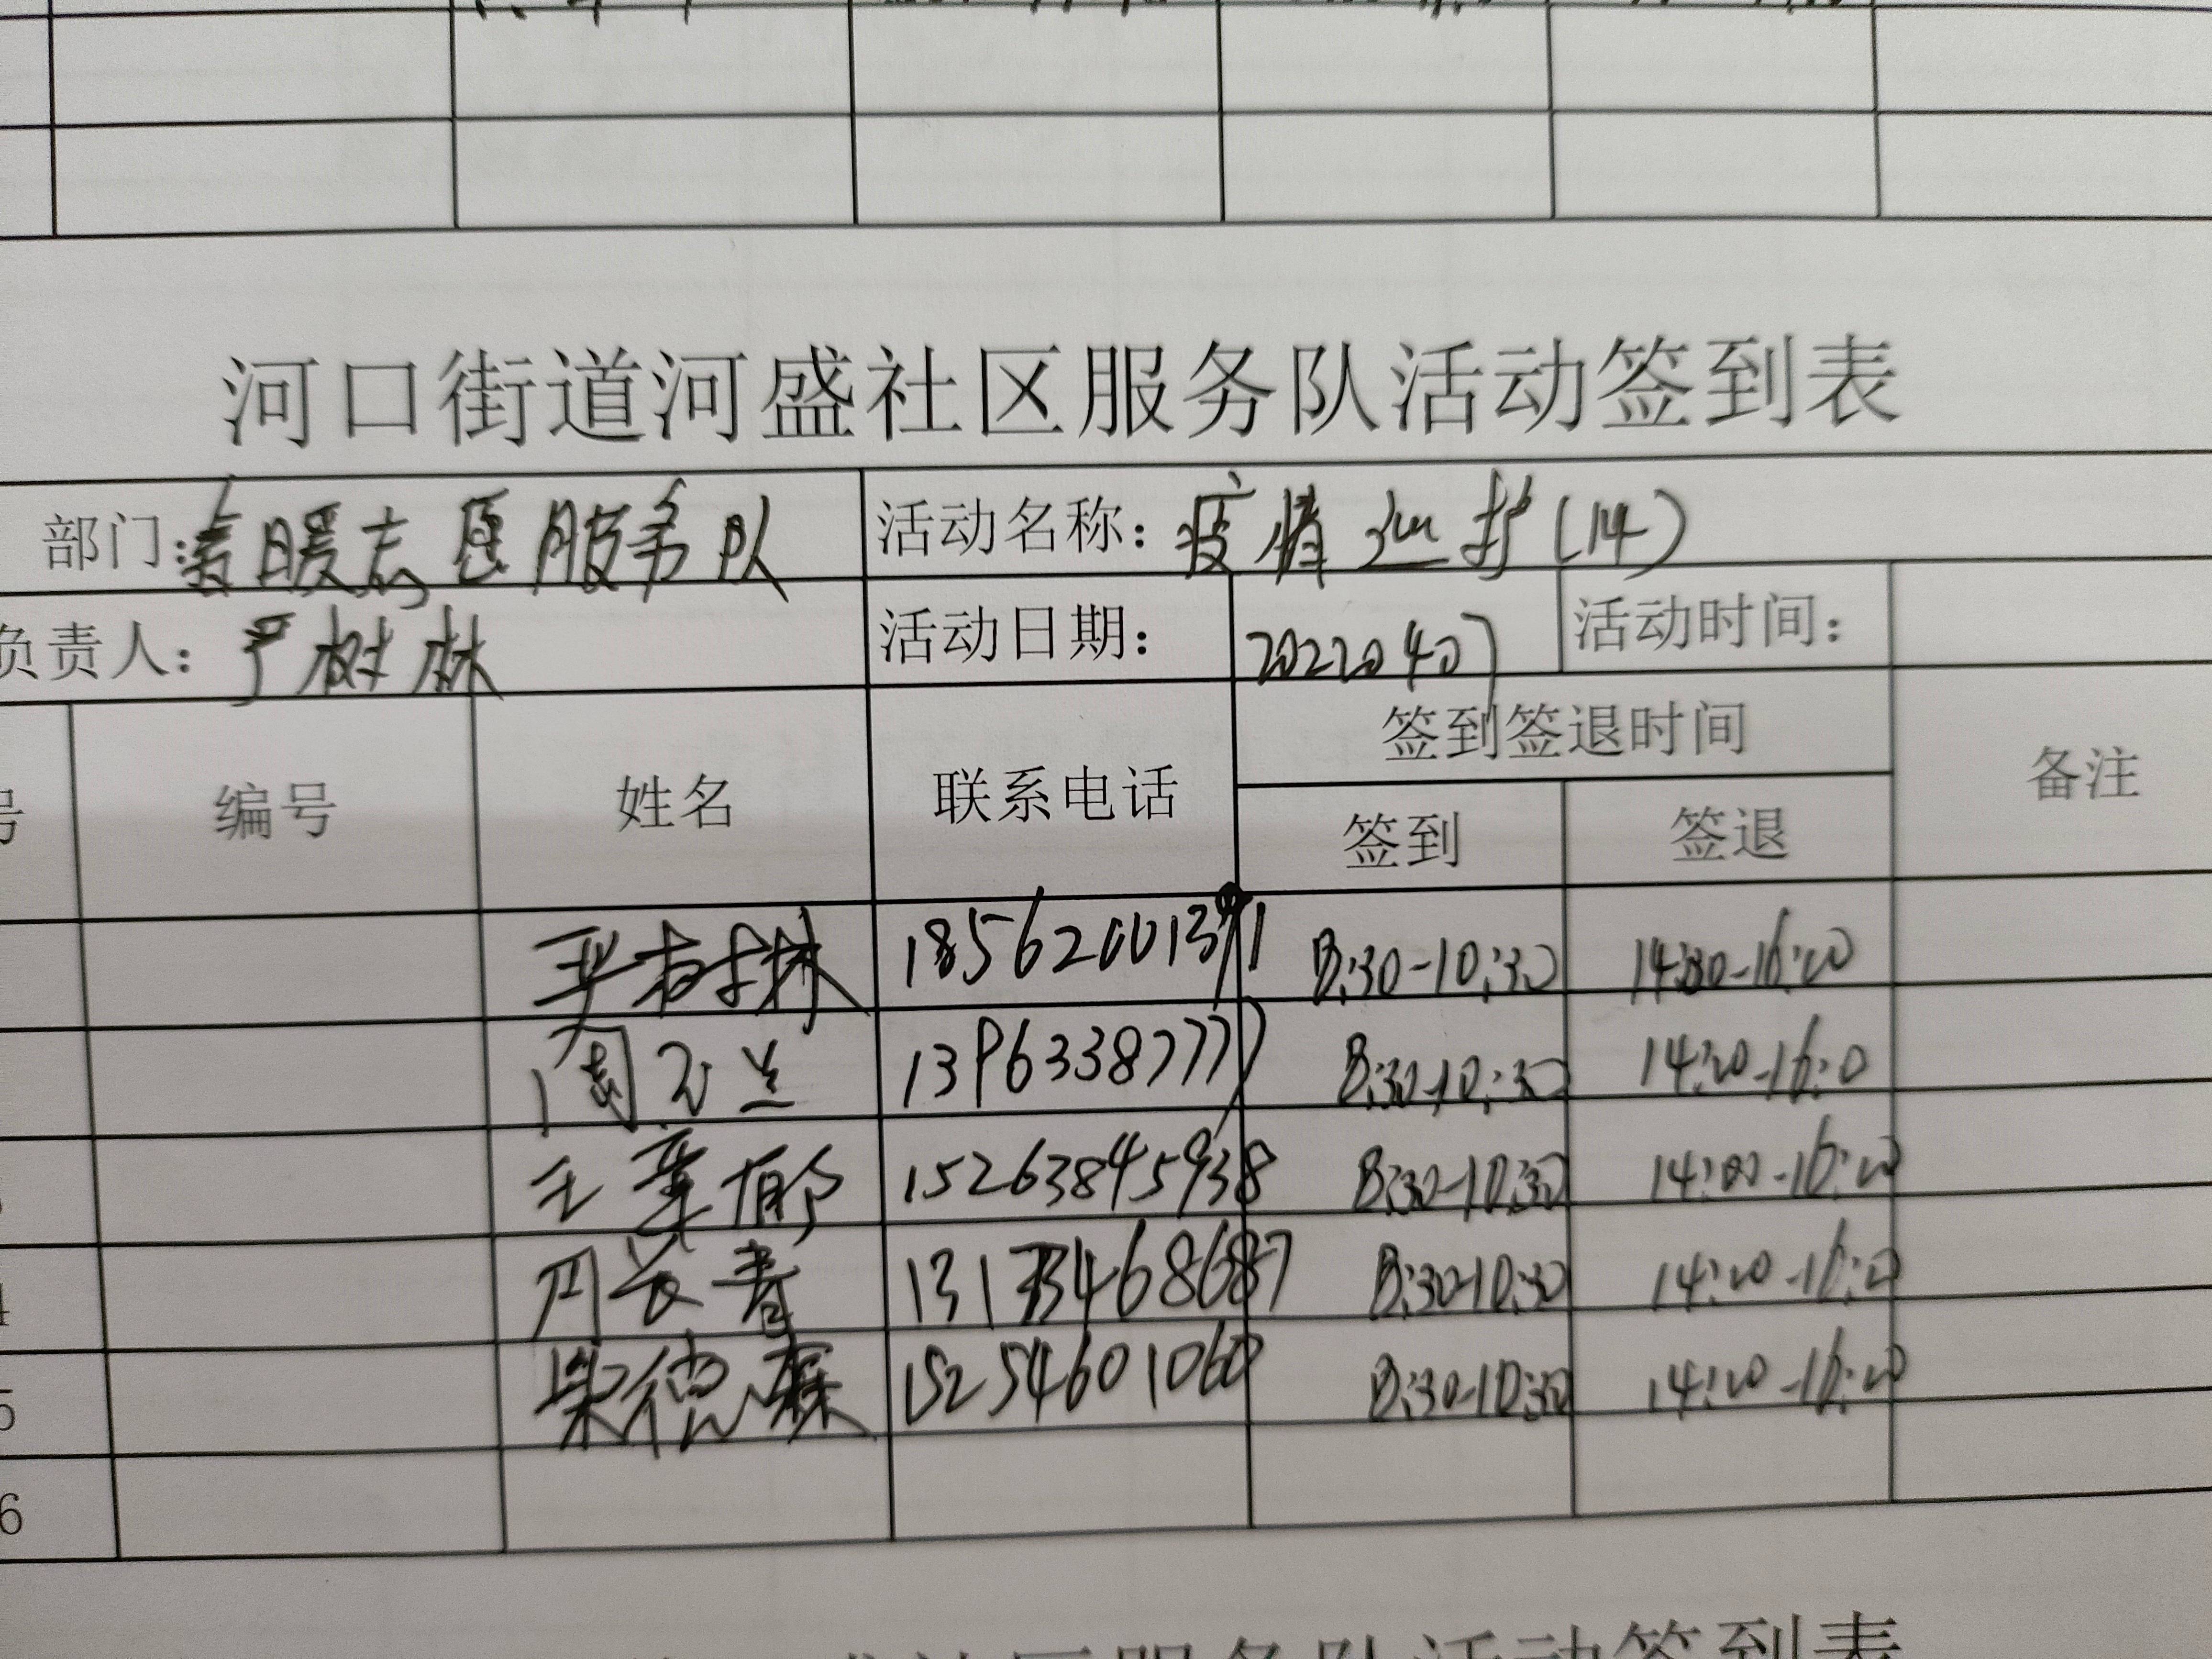 河口街道河盛社区服务队活动签到表
部门: 春暖志愿服务队 活动名称: 疫情巡护(14)
负责人: 严树林 活动日期: 20220407 活动时间:
号 编号 姓名 联系电话 签到签退时间 备注
签到 签退
严树林 18562001391 8:30-10:30 14:00-16:00
周玉兰 13963387777 8:30-10:30 14:00-16:0
15263845938 8:30-10:30 14:00-16:00
4 周长青 8:30-10:30 14:00-16:00
5 梁德森 15254601060 8:30-10:30 14:00-16:00
6
社区服务队活动签到表